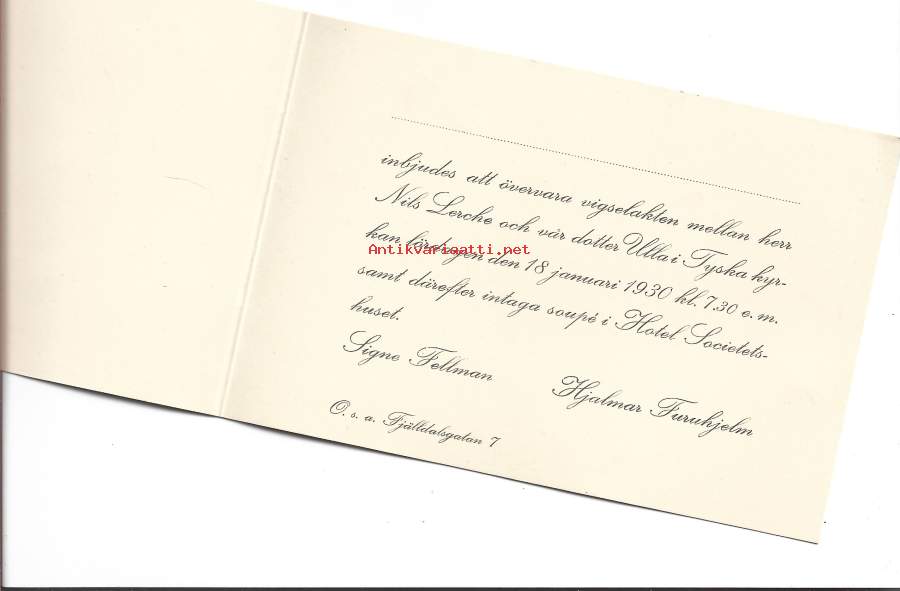 inbjudes att övervara vigselakten mellan herr
Nils Lerche och vår dotter Ulla i Tyska kyr-
kan lördagen den 18 januari 1930 kl. 7.30 e. m.
samt därefter intaga soupé i Hotel Societets-
huset.
Signe Fellman Hjalmar Furuhjelm
O. s. a. Fjälldalsgatan 7
Antikvariaatti.net